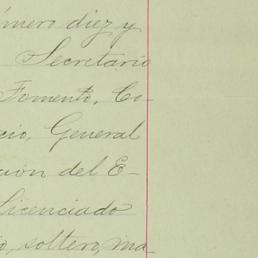 úmero diez y
Secretario
Fomento, Co-
cio, General
ción del E-
Licenciado
io, soltero, ma-